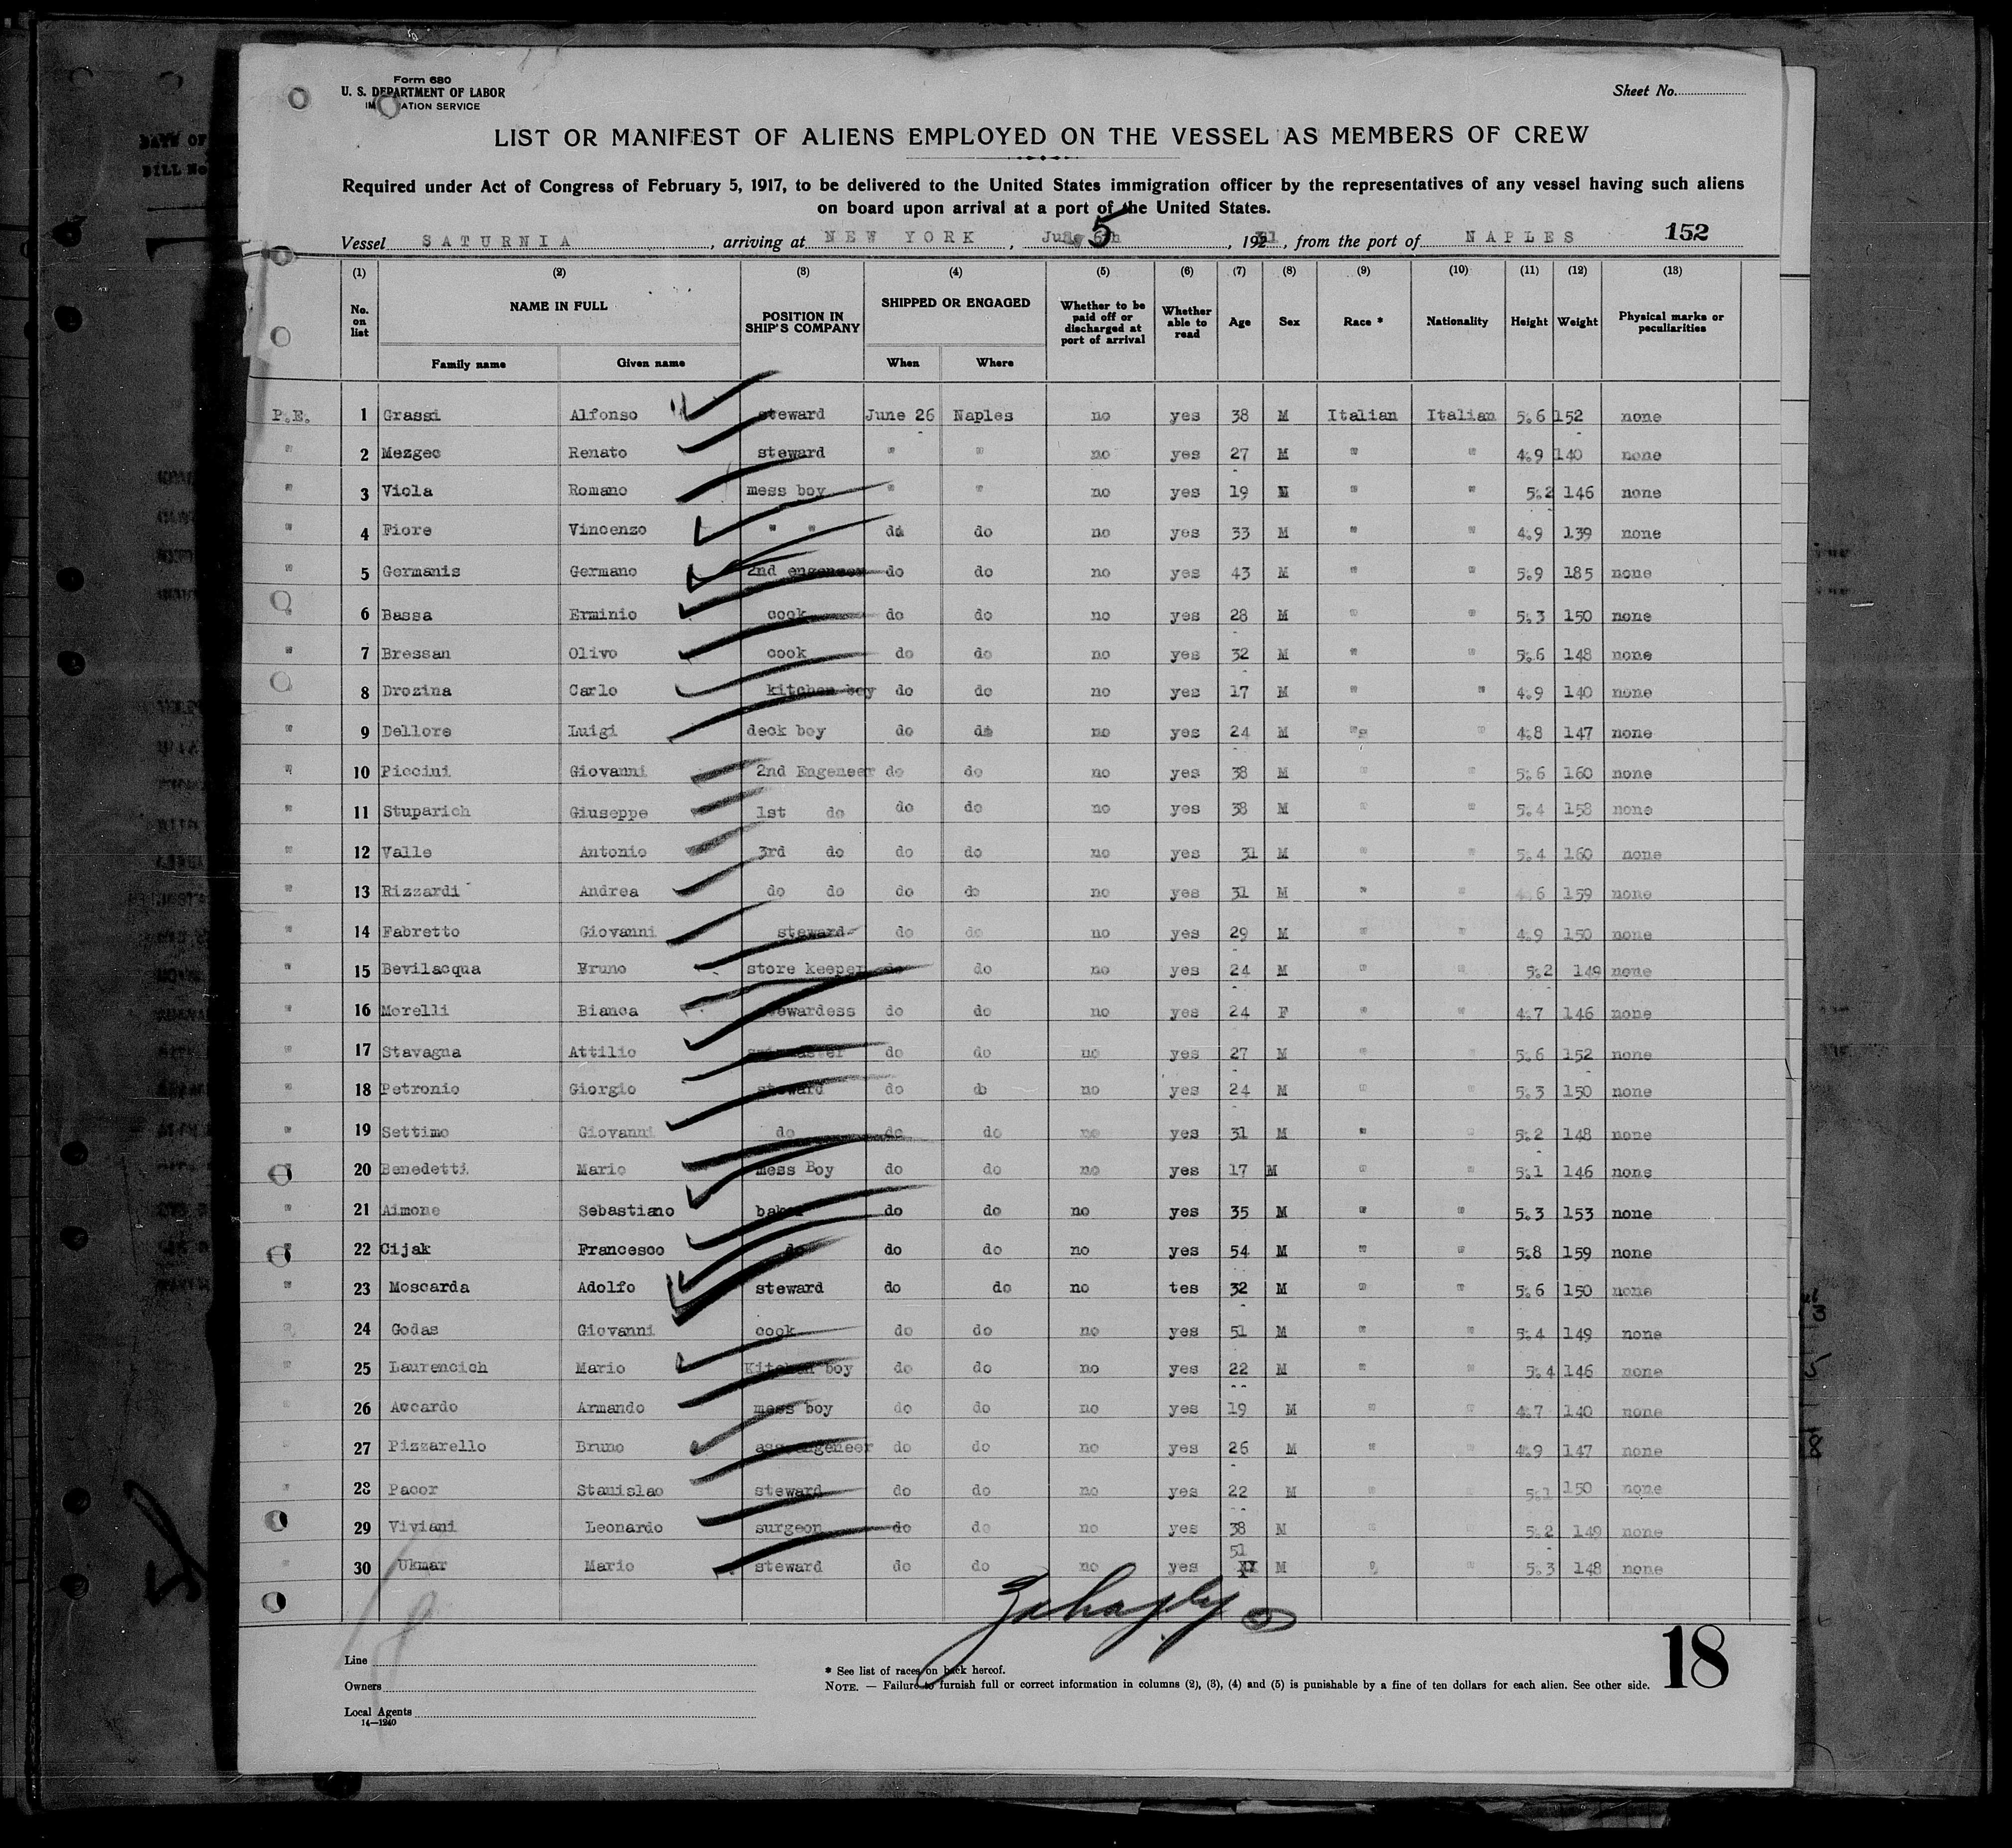 Form 680
U. S. DEPARTMENT OF LABOR
IMMIGRATION SERVICE
Sheet No.
LIST OR MANIFEST OF ALIENS EMPLOYED ON THE VESSEL AS MEMBERS OF CREW
Required under Act of Congress of February 5, 1917, to be delivered to the United States immigration officer by the representatives of any vessel having such aliens
on board upon arrival at a port of the United States.
Vessel SATURNIA, arriving at NEW YORK, 5, 1931, from the port of NAPLES 152
(1) (2) (3) (4) (5) (6) (7) (8) (9) (10) (11) (12) (13)
No. on list NAME IN FULL Family name Given name POSITION IN SHIP'S COMPANY SHIPPED OR ENGAGED When Where Whether to be paid off or discharged at port of arrival Whether able to read Age Sex Race * Nationality Height Weight Physical marks or peculiarities
P.E. 1 Grassi Alfonso steward June 26 Naples no yes 38 M Italian Italian 5.6 152 none
" 2 Mezgec Renato steward " " no yes 27 M " " 4.9 140 none
" 3 Viola Romano mess boy " " no yes 19 M " " 5.2 146 none
" 4 Fiore Vincenzo " " do do no yes 33 M " " 4.9 139 none
" 5 Germanis Germano 2nd engeneer do do no yes 43 M " " 5.9 185 none
" 6 Bassa Erminio cook do do no yes 28 M " " 5.3 150 none
" 7 Bressan Olivo cook do do no yes 32 M " " 5.6 148 none
" 8 Drozina Carlo kitchen boy do do no yes 17 M " " 4.9 140 none
" 9 Dellore Luigi deck boy do do no yes 24 M " " 4.8 147 none
" 10 Piccini Giovanni 2nd Engeneer do do no yes 38 M " " 5.6 160 none
" 11 Stuparich Giuseppe 1st do do do no yes 38 M " " 5.4 158 none
" 12 Valle Antonio 3rd do do do no yes 31 M " " 5.4 160 none
" 13 Rizzardi Andrea do do do do no yes 31 M " " 4.6 159 none
" 14 Fabretto Giovanni steward do do no yes 29 M " " 4.9 150 none
" 15 Bevilacqua Bruno store keeper do do no yes 24 M " " 5.2 149 none
" 16 Morelli Bianca stewardess do do no yes 24 F " " 4.7 146 none
" 17 Stavagna Attilio do do no yes 27 M " " 5.6 152 none
" 18 Petronio Giorgio steward do do no yes 24 M " " 5.3 150 none
" 19 Settimo Giovanni do do do no yes 31 M " " 5.2 148 none
" 20 Benedetti Mario mess Boy do do no yes 17 M " " 5.1 146 none
" 21 Aimone Sebastiano baker do do no yes 35 M " " 5.3 153 none
" 22 Cijak Francesco do do do no yes 54 M " " 5.8 159 none
" 23 Moscarda Adolfo steward do do no tes 32 M " " 5.6 150 none
" 24 Godas Giovanni cook do do no yes 51 M " " 5.4 149 none
" 25 Laurencich Mario Kitchen boy do do no yes 22 M " " 5.4 146 none
" 26 Accardo Armando mess boy do do no yes 19 M " " 4.7 140 none
" 27 Pizzarello Bruno ass.engeneer do do no yes 26 M " " 4.9 147 none
" 28 Pacor Stanislao steward do do no yes 22 M " " 5.1 150 none
" 29 Viviani Leonardo surgeon do do no yes 38 M " 5.2 149 none
" 30 Ukmar Mario steward do do no yes 51 M " " 5.3 148 none
Line
Owners
Local Agents
14—1240
* See list of races on back hereof.
NOTE. — Failure to furnish full or correct information in columns (2), (3), (4) and (5) is punishable by a fine of ten dollars for each alien. See other side.
18